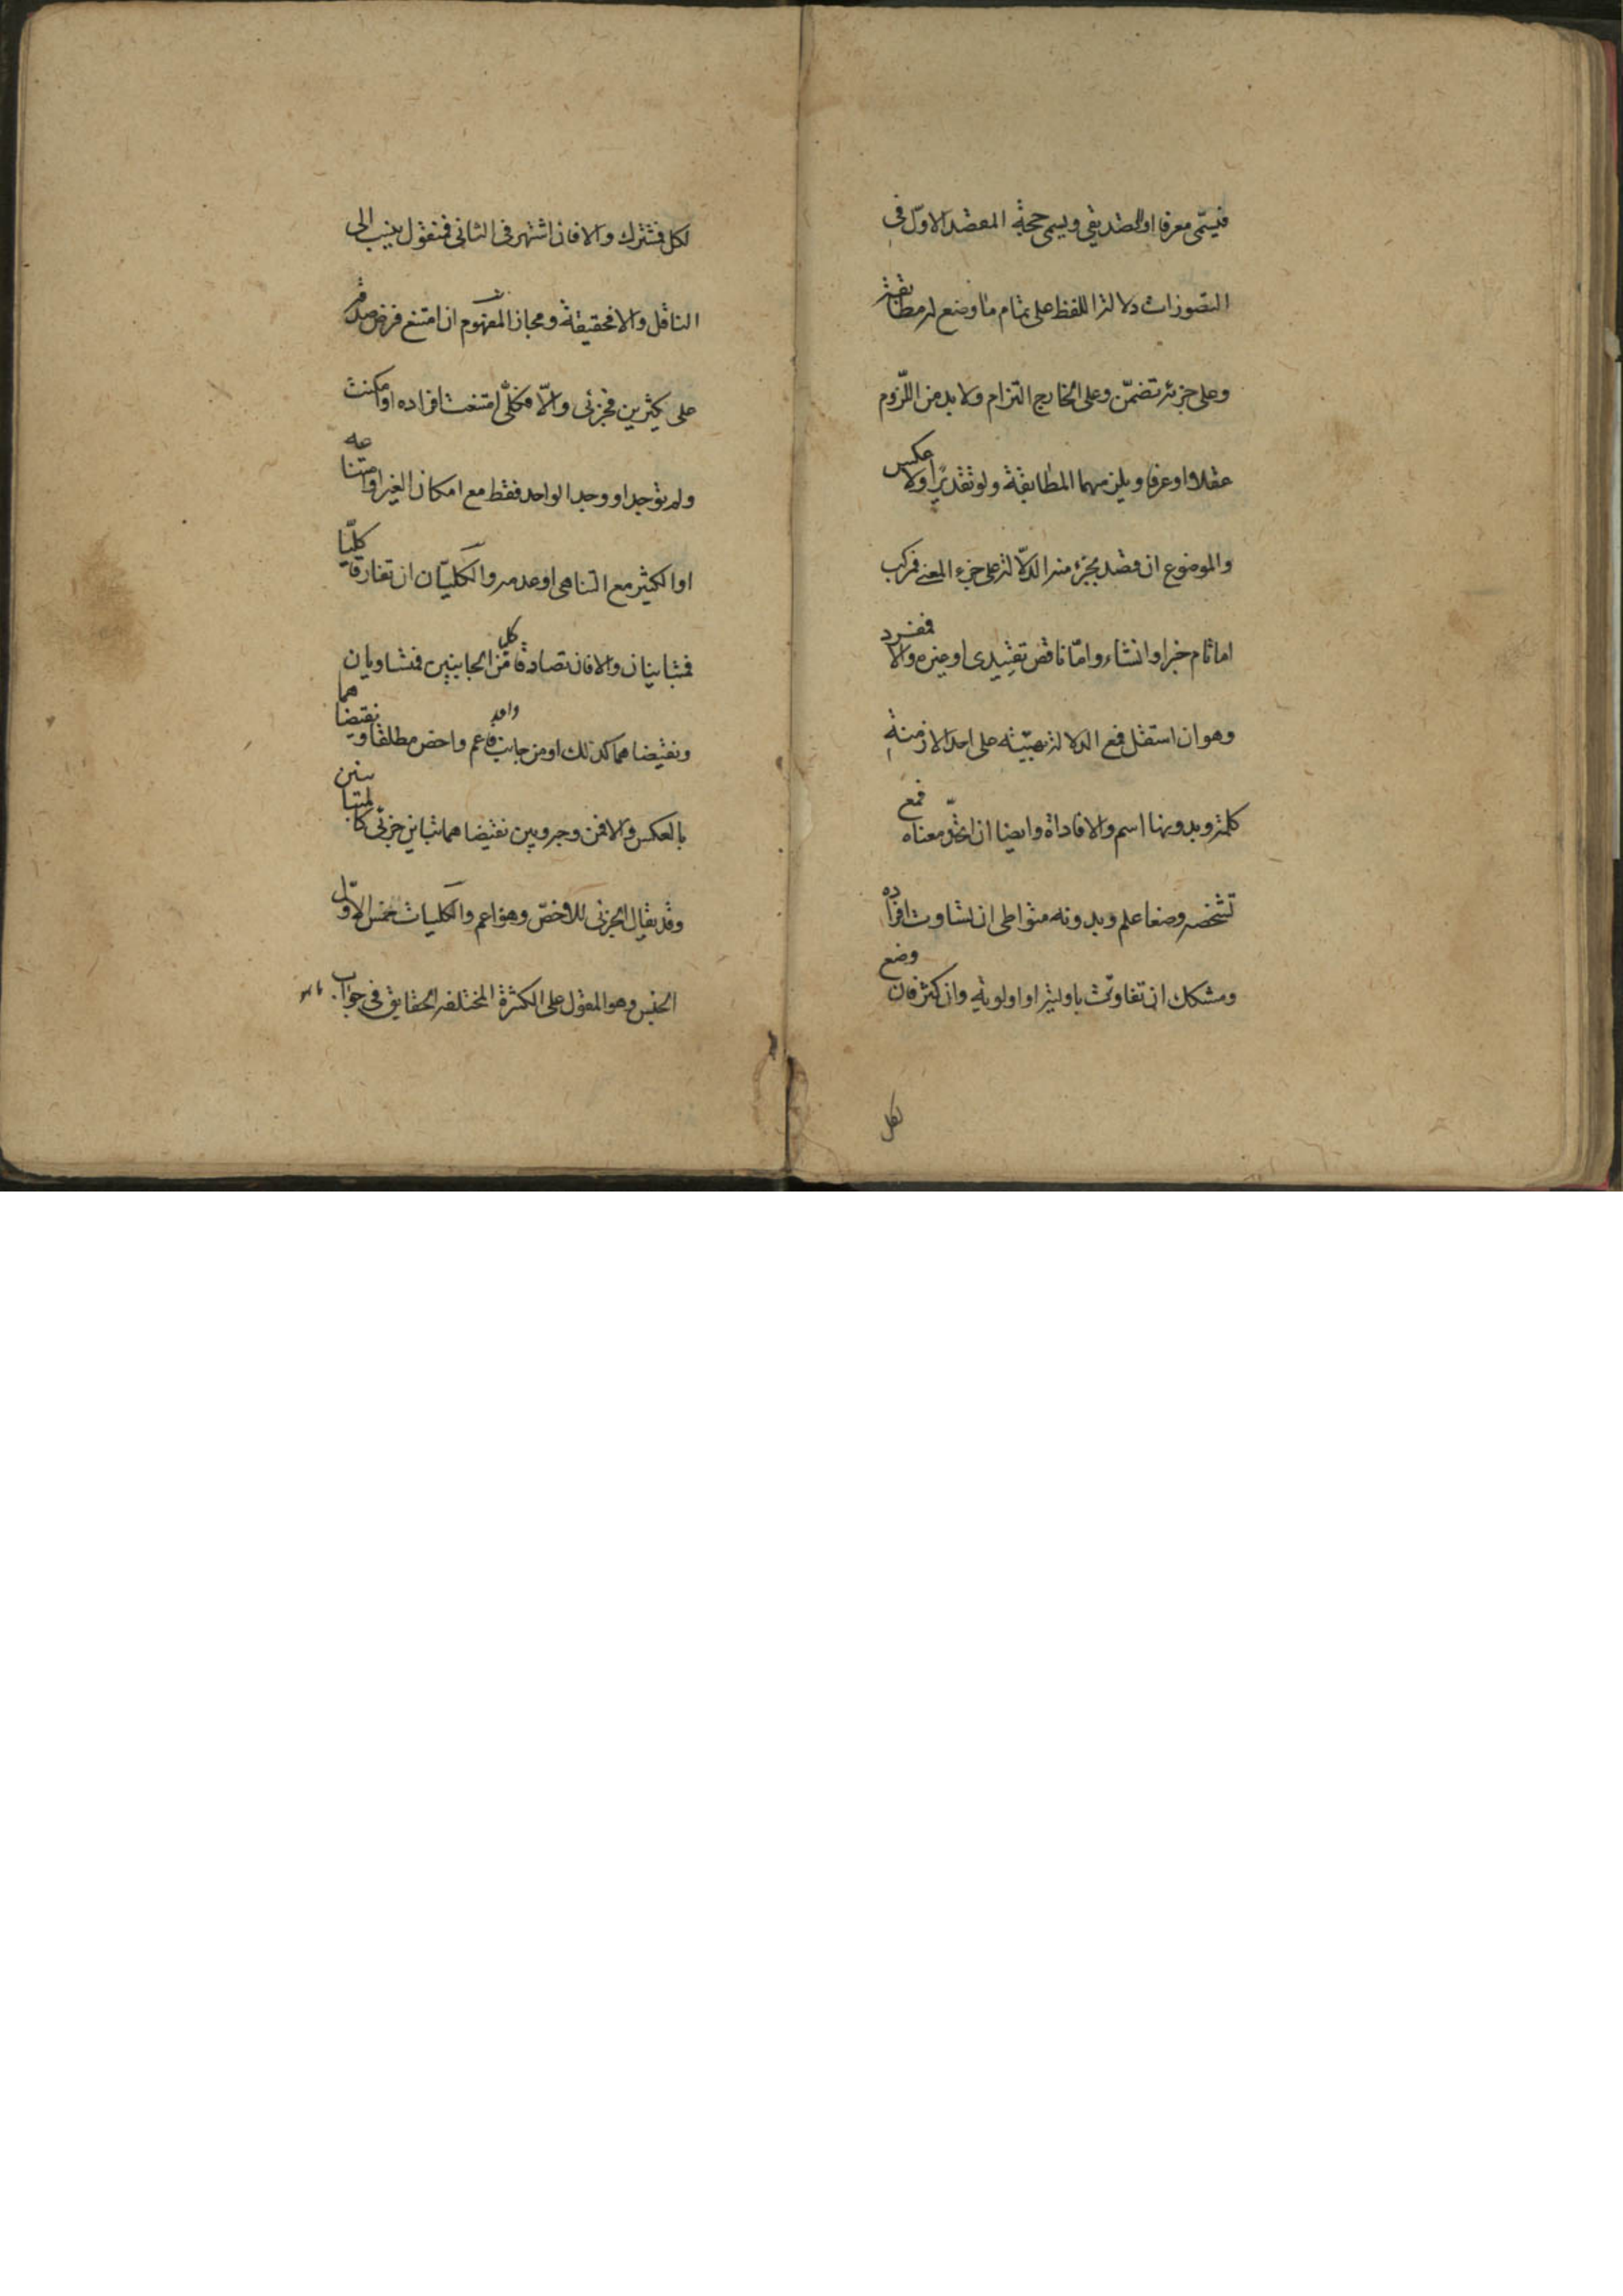 فيسمى معرفا او التصديقى ويسمى حجة المقصد الاول فى
التصورات دلالة اللفظ على تمام ما وضع له مطابقة
وعلى جزئه تضمّن وعلى الخارج التزام ولا بد من اللّزوم
عقلا او عرفا ويلزمهما المطابقة ولو تقديرا ولا عكس
والموضوع ان قصد بجزء منه الدّلالة على جزء المعنى فمركب
اما تام خبر او انشاء وامّا ناقص تقييدى او غيره والا فمفرد
وهو ان استقل فمع الدلالة بهيئته على احد الازمنة
كلمة وبدونها اسم والا فاداة وايضا ان اتحد معناه فمع
تشخصه وضعا علم وبدونه متواطى ان تساوت افراده
ومشكك ان تفاوتت باولية او اولوية وان كثر فان وضع
لكل
لكل فمشترك والا فان اشتهر فى الثانى فمنقول ينسب الى
الناقل والا فحقيقة ومجاز المفهوم ان امتنع فرض صدقه
على كثيرين فجزئى والّا فكلّى امتنعت افراده او امكنت
ولم توجد او وجد الواحد فقط مع امكان الغير او امتناعه
او الكثير مع التناهى او عدمه والكليّان ان تفارقا كليّا
فمتباينان والا فان تصادقا كليا من الجانبين فمتساويان
ونقيضاهما كذلك او من جانب واحد فاعم واخص مطلقا ونقيضاهما
بالعكس والا فمن وجه وبين نقيضاهما تباين جزئى كالمتباينين
وقد يقال الجزئى للاخصّ وهو اعم والكليات خمس الاوّل
الجنس وهو المقول على الكثرة المختلفة الحقايق فى جواب ما هو